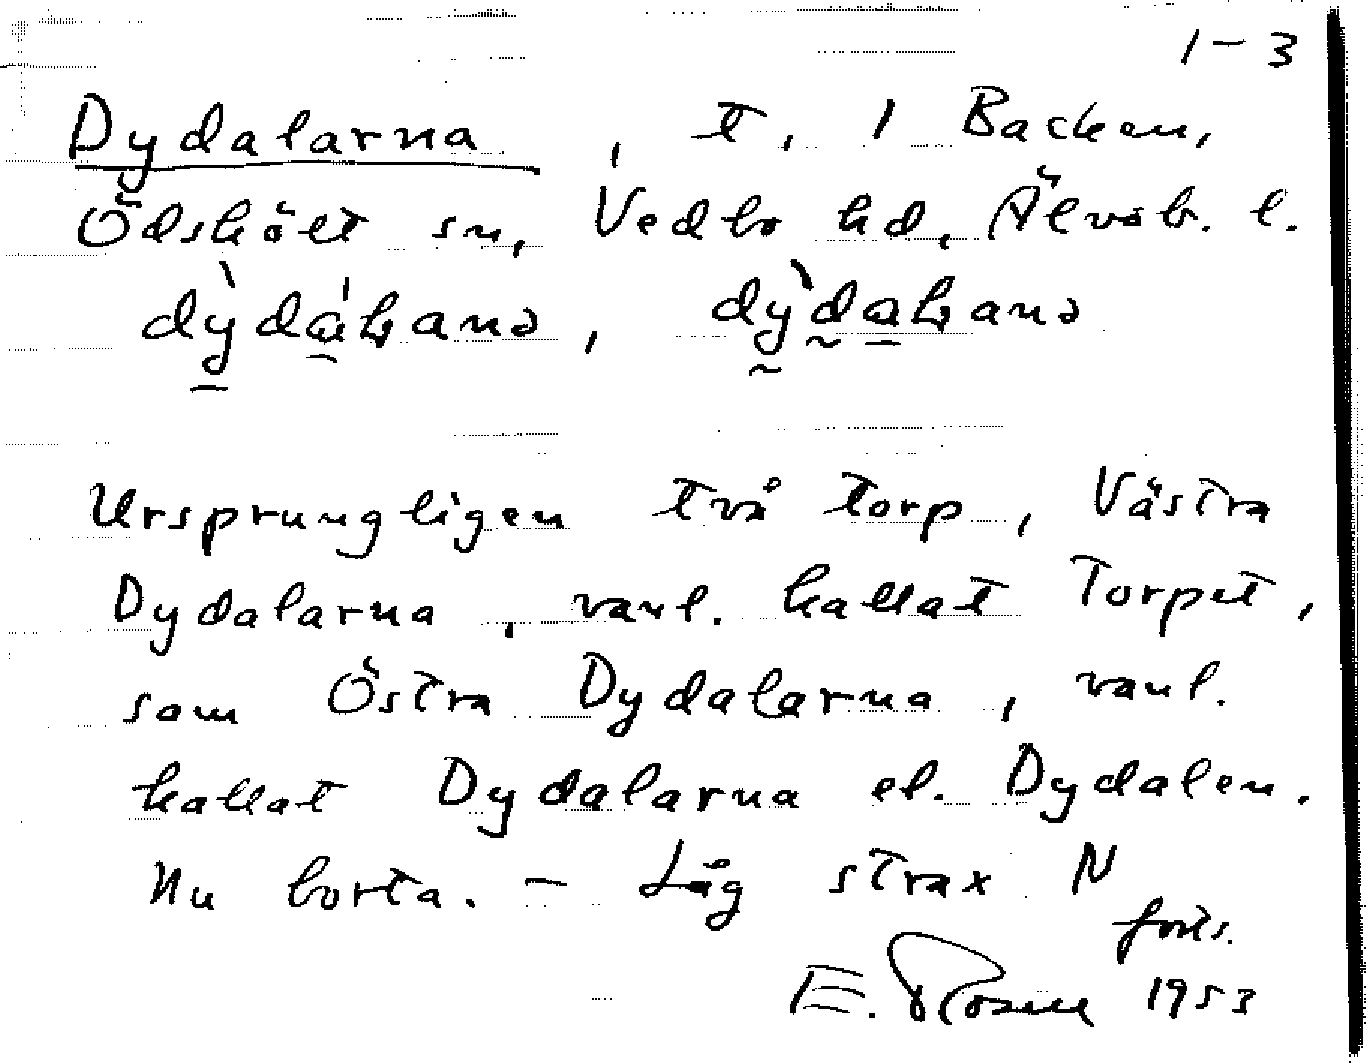 1-3
Dydalarna, t. 1 Backen,
Ödskölt sn, Vedbo hd, Älvsb. l.
Ursprungligen två torp, Västra
Dydalarna, vanl. kallat Torpet,
som Östra Dydalarna, vanl.
kallat Dydalarna el. Dydalen.
Nu borta. - Låg strax N
forts.
E. Rosell 1953